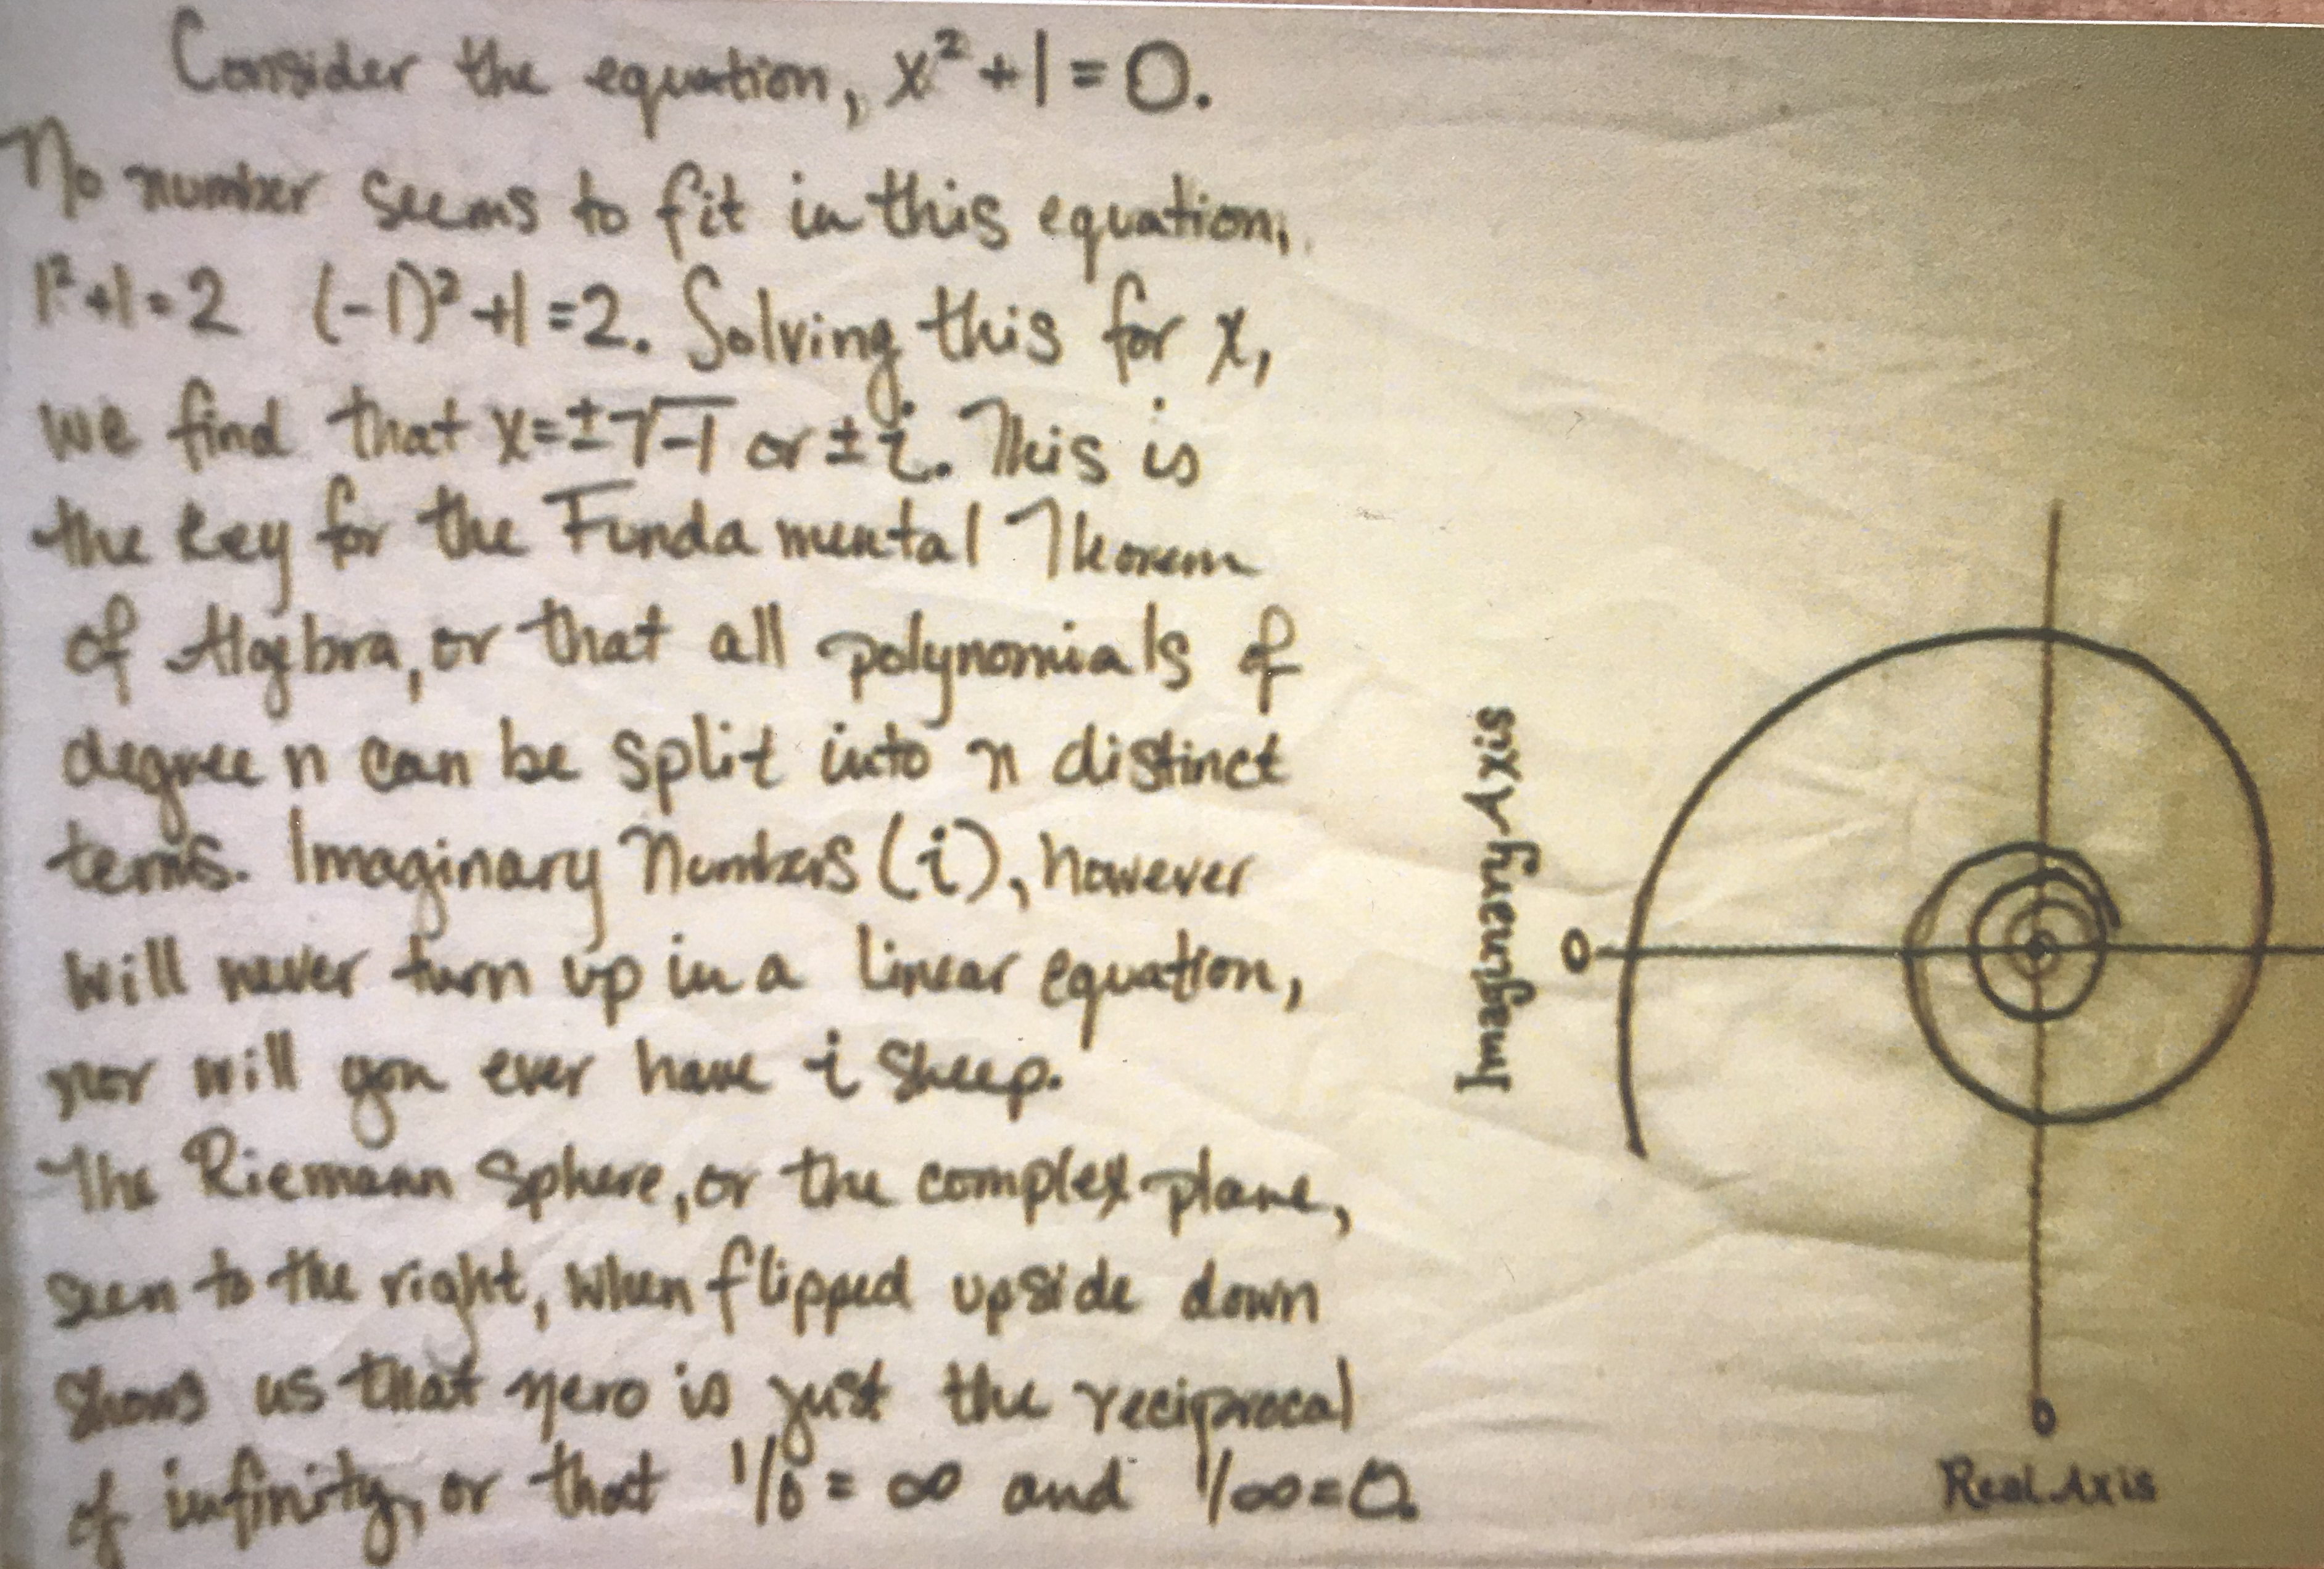 Consider the equation, x²+1=0.
No number seems to fit in this equation,
1²+1=2 (-1)²+1=2. Solving this for x,
we find that x=±√-1 or ±i. This is
the key for the Fundamental Theorem
of Algebra, or that all polynomials of
degree n can be split into n distinct
terms. Imaginary Numbers (i), however
will never turn up in a linear equation,
nor will you ever have i sheep.
The Riemann Sphere, or the complex plane,
seen to the right, when flipped upside down
shows us that zero is just the reciprocal
of infinity, or that 1/0=∞ and 1/∞=0.
Imaginary Axis
0
0
Real Axis